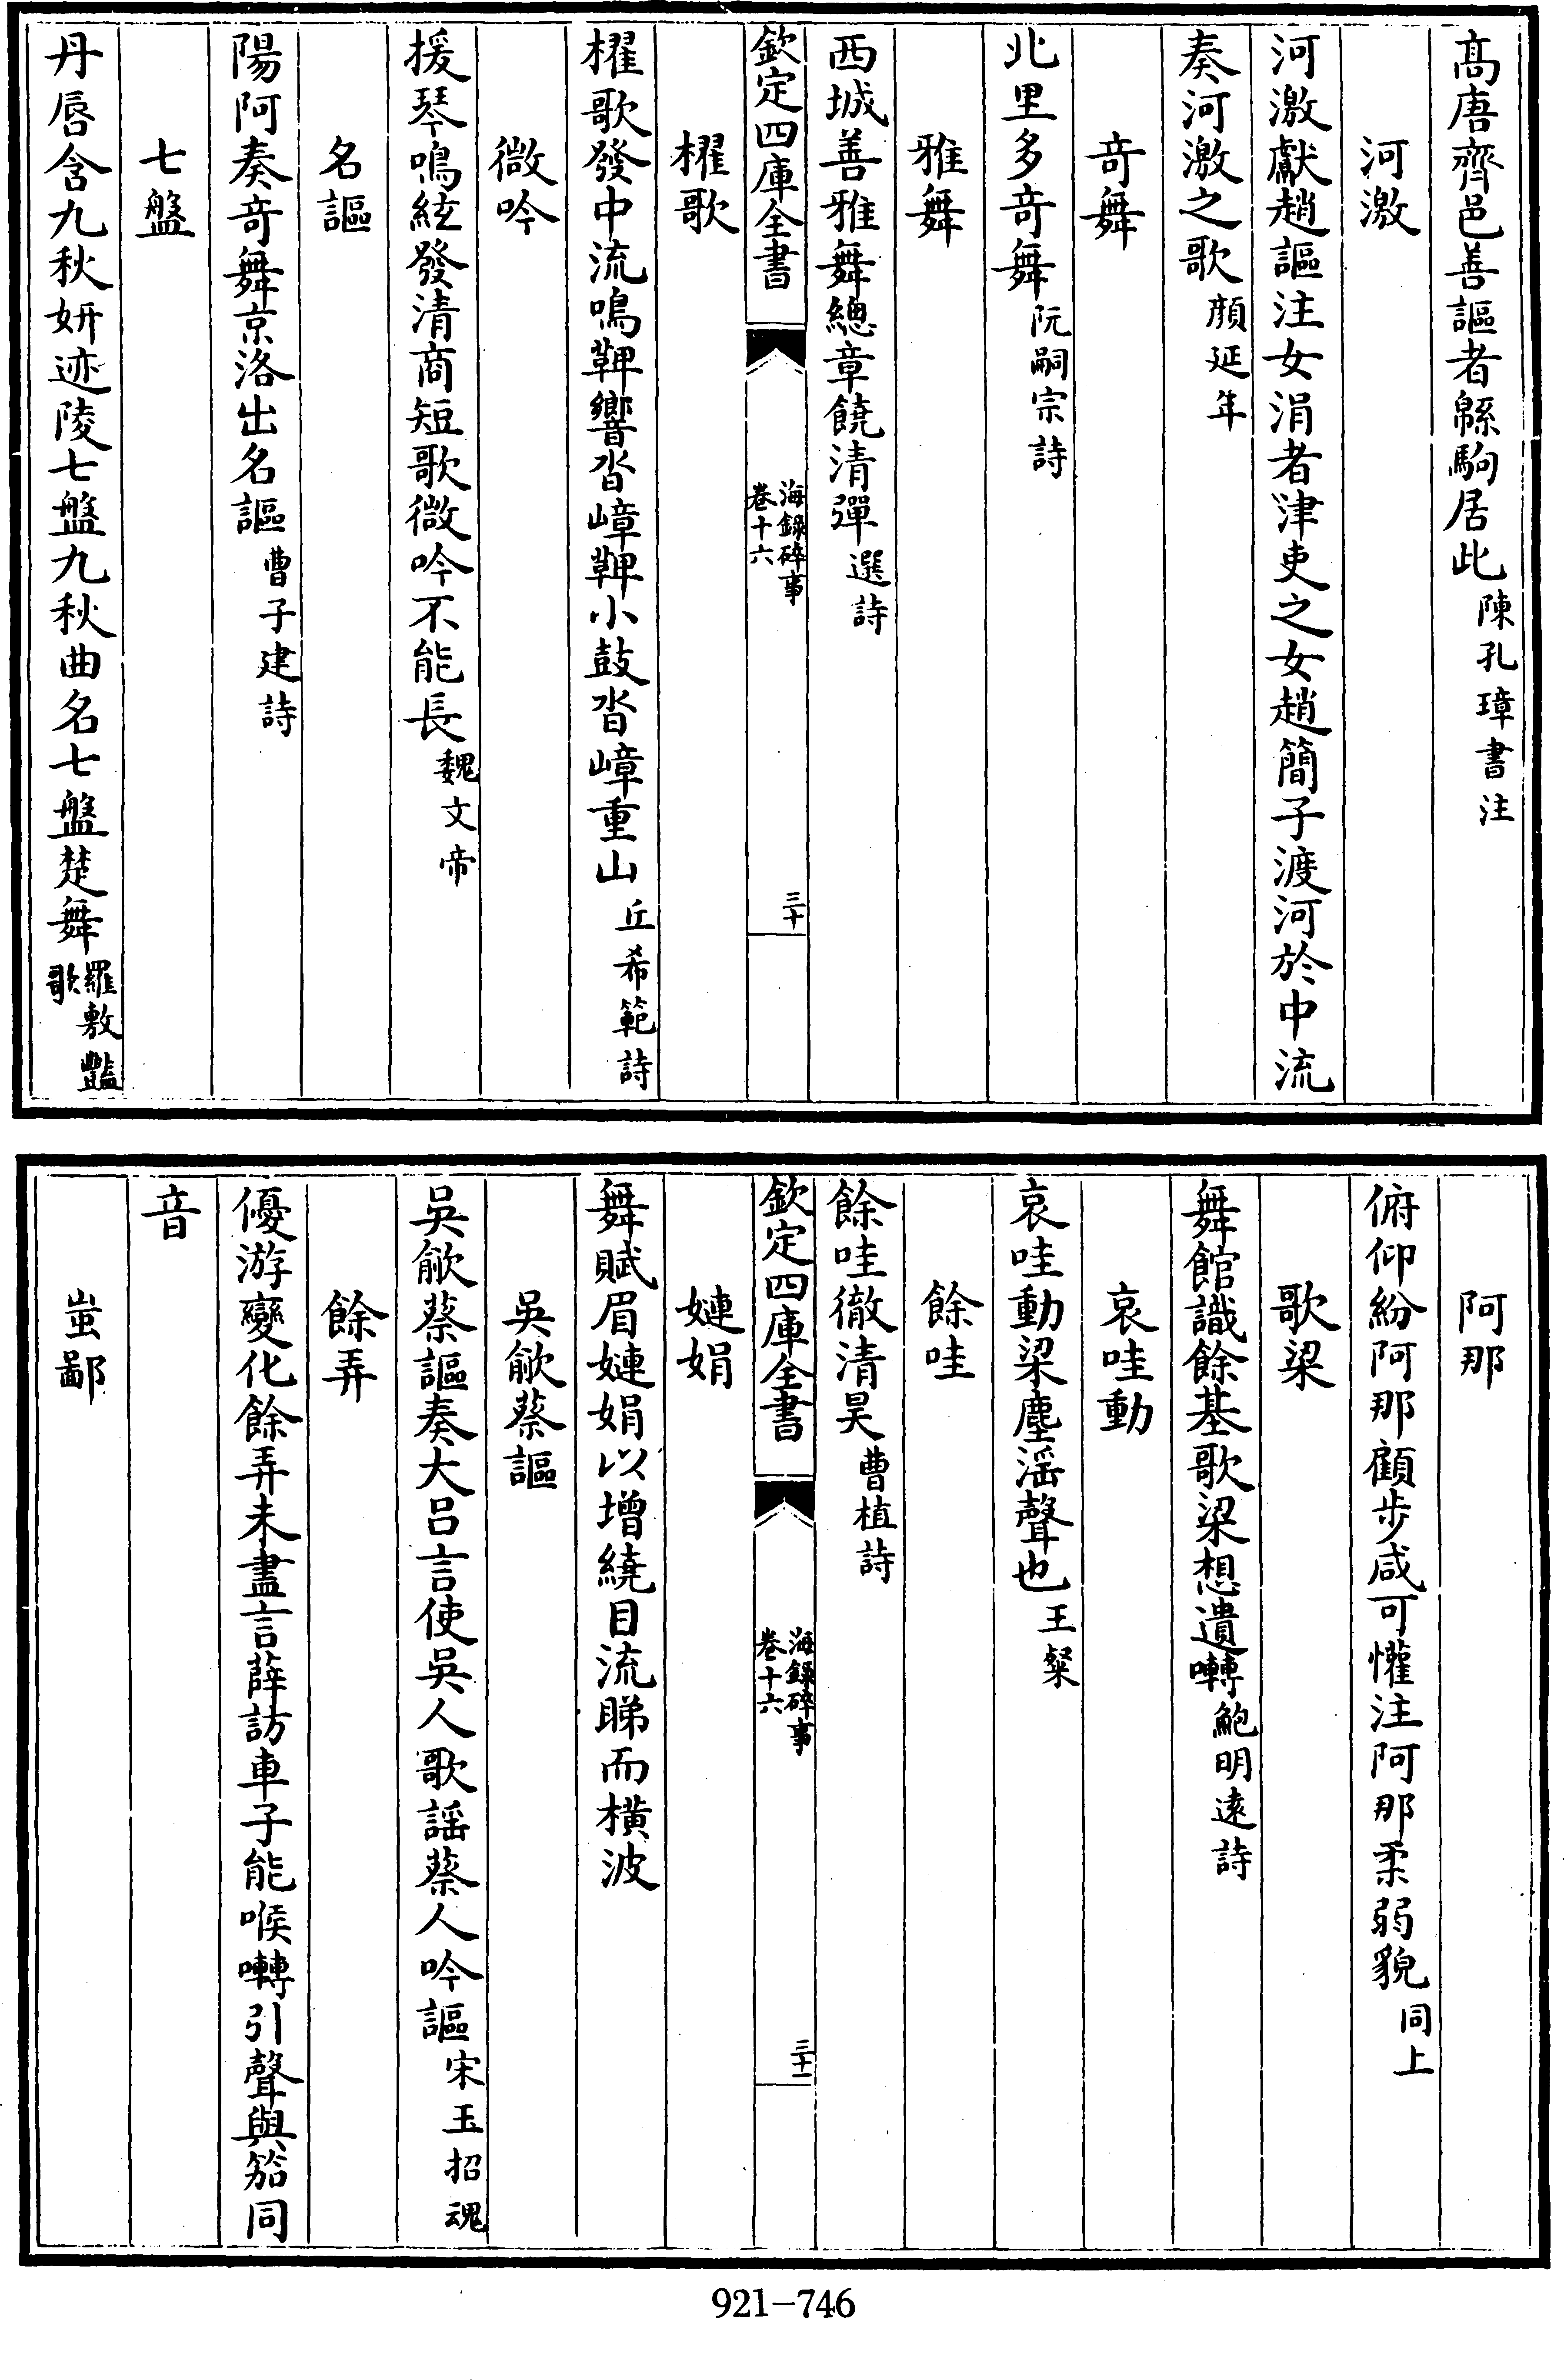 髙唐齊邑善謳者緜駒居此陳孔璋書注
河激
河激獻趙謳注女涓者津吏之女趙簡子渡河於中流
奏河激之歌顔延年
竒舞
北里多竒舞阮嗣宗詩
雅舞
西城善雅舞總章饒清彈選詩
欽定四庫全書
海録碎事
卷十六
三十
櫂歌
櫂歌發中流鳴鞞響沓嶂鞞小鼓沓嶂重山丘希範詩
微吟
援琴鳴絃發清商短歌微吟不能長魏文帝
名謳
陽阿奏竒舞京洛出名謳曹子建詩
七盤
丹唇含九秋妍迹陵七盤九秋曲名七盤楚舞羅敷豔
歌
阿那
俯仰紛阿那顧步咸可懽注阿那柔弱貌同上
歌梁
舞館識餘基歌梁想遺囀鮑明逺詩
哀哇動
哀哇動梁塵滛聲也王粲
餘哇
餘哇徹清昊曹植詩
欽定四庫全書
海録碎事
卷十六
三十一
嫌娟
舞賦眉嫌娟以增繞目流睇而橫波
吳歈蔡謳
吳歈蔡謳奏大吕言使吳人歌謡蔡人吟謳宋玉招魂
餘弄
優游變化餘弄未盡言薛訪車子能喉囀引聲與笳同
音
蚩鄙
921-746